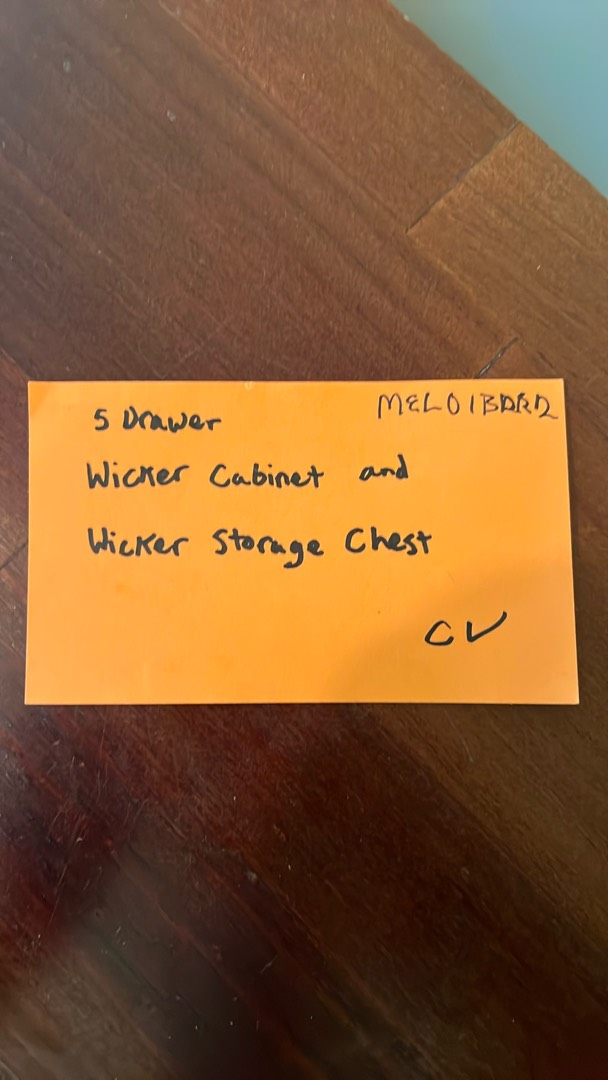 MEL01BDR2
5 Drawer
Wicker Cabinet and
Wicker Storage Chest
CV